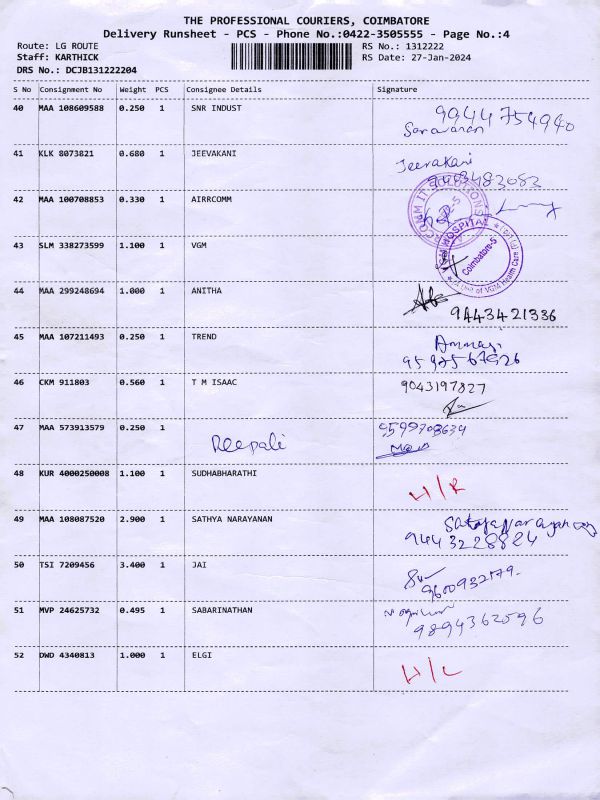 THE PROFESSIONAL COURIERS, COIMBATORE
Delivery Runsheet - PCS - Phone No.:0422-3505555 - Page No.:4
Route: LG ROUTE RS No.: 1312222
Staff: KARTHICK RS Date: 27-Jan-2024
DRS No.: DCJB131222204
S No Consignment No Weight PCS Consignee Details Signature
40 MAA 108609588 0.250 1 SNR INDUST 9944754940
Saravanan
41 KLK 8073821 0.680 1 JEEVAKANI Jeevakani
9403483083
42 MAA 100708853 0.330 1 AIRRCOMM
43 SLM 338273599 1.100 1 VGM
HOSPITAL
Coimbatore-5
A Unit of VGM Health Care
44 MAA 299248694 1.000 1 ANITHA
9443421336
45 MAA 107211493 0.250 1 TREND
9597567926
46 CKM 911803 0.560 1 T M ISAAC 9043197827
47 MAA 573913579 0.250 1 Deepali 9599708639
48 KUR 4000250008 1.100 1 SUDHABHARATHI
49 MAA 108087520 2.900 1 SATHYA NARAYANAN
9443228824
50 TSI 7209456 3.400 1 JAI
9600932179.
51 MVP 24625732 0.495 1 SABARINATHAN
9894362596
52 DWD 4340813 1.000 1 ELGI